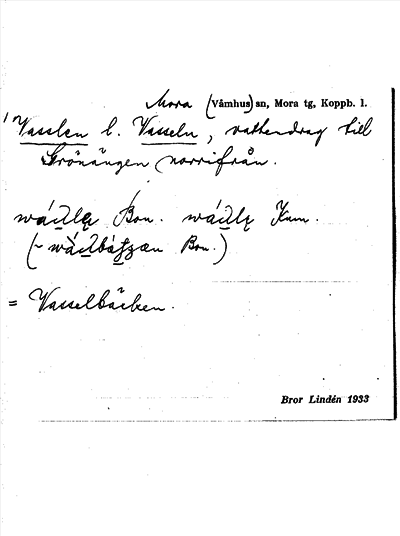 Mora (Våmhus) sn, Mora tg, Koppb. l.
1) Vasslen l. Vasseln, vattendrag till
Grönängen norrifrån.
Bon. Kum.
Bon.)
= Vasselbäcken.
Bror Lindén 1933